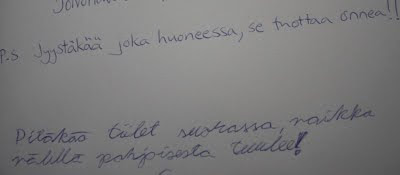 P.S Jyystäkää joka huoneessa, se tuottaa onnea!!
Pitäkää tület suorassa, vaikka
välillä pohjoisesta tuulee!